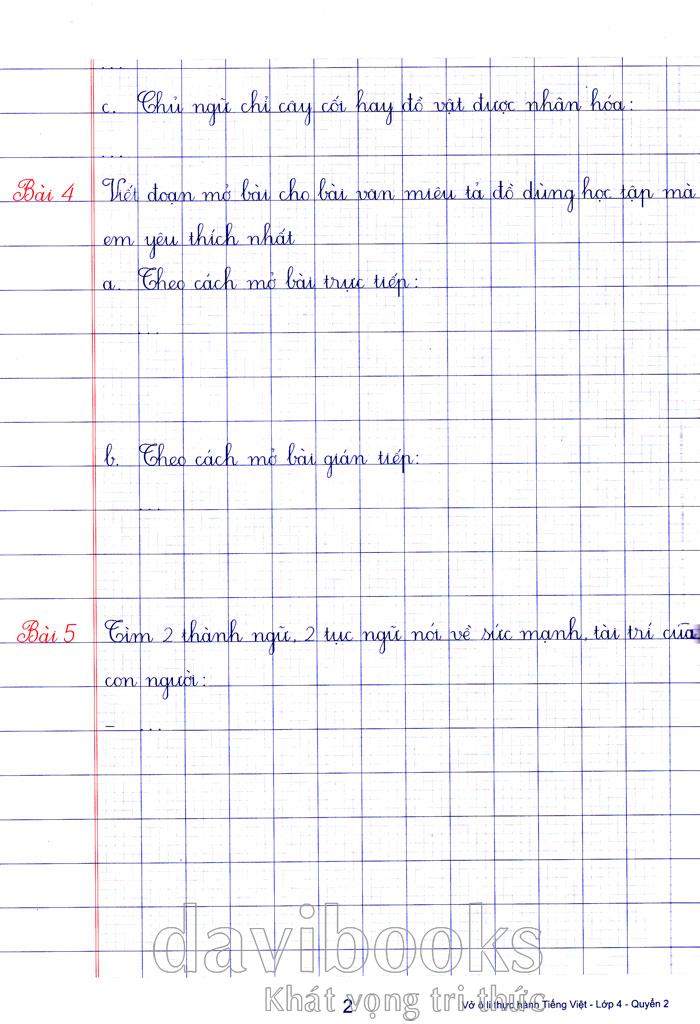 ...
c. Chủ ngữ chỉ cây cối hay đồ vật được nhân hóa:
...
Bài 4 Viết đoạn mở bài cho bài văn miêu tả đồ dùng học tập mà
em yêu thích nhất
a. Theo cách mở bài trực tiếp:
...
b. Theo cách mở bài gián tiếp:
...
Bài 5 Tìm 2 thành ngữ, 2 tục ngữ nói về sức mạnh, tài trí của
con người:
- ...
davibooks
Khát vọng tri thức
2 Vở ô li thực hành Tiếng Việt - Lớp 4 - Quyển 2